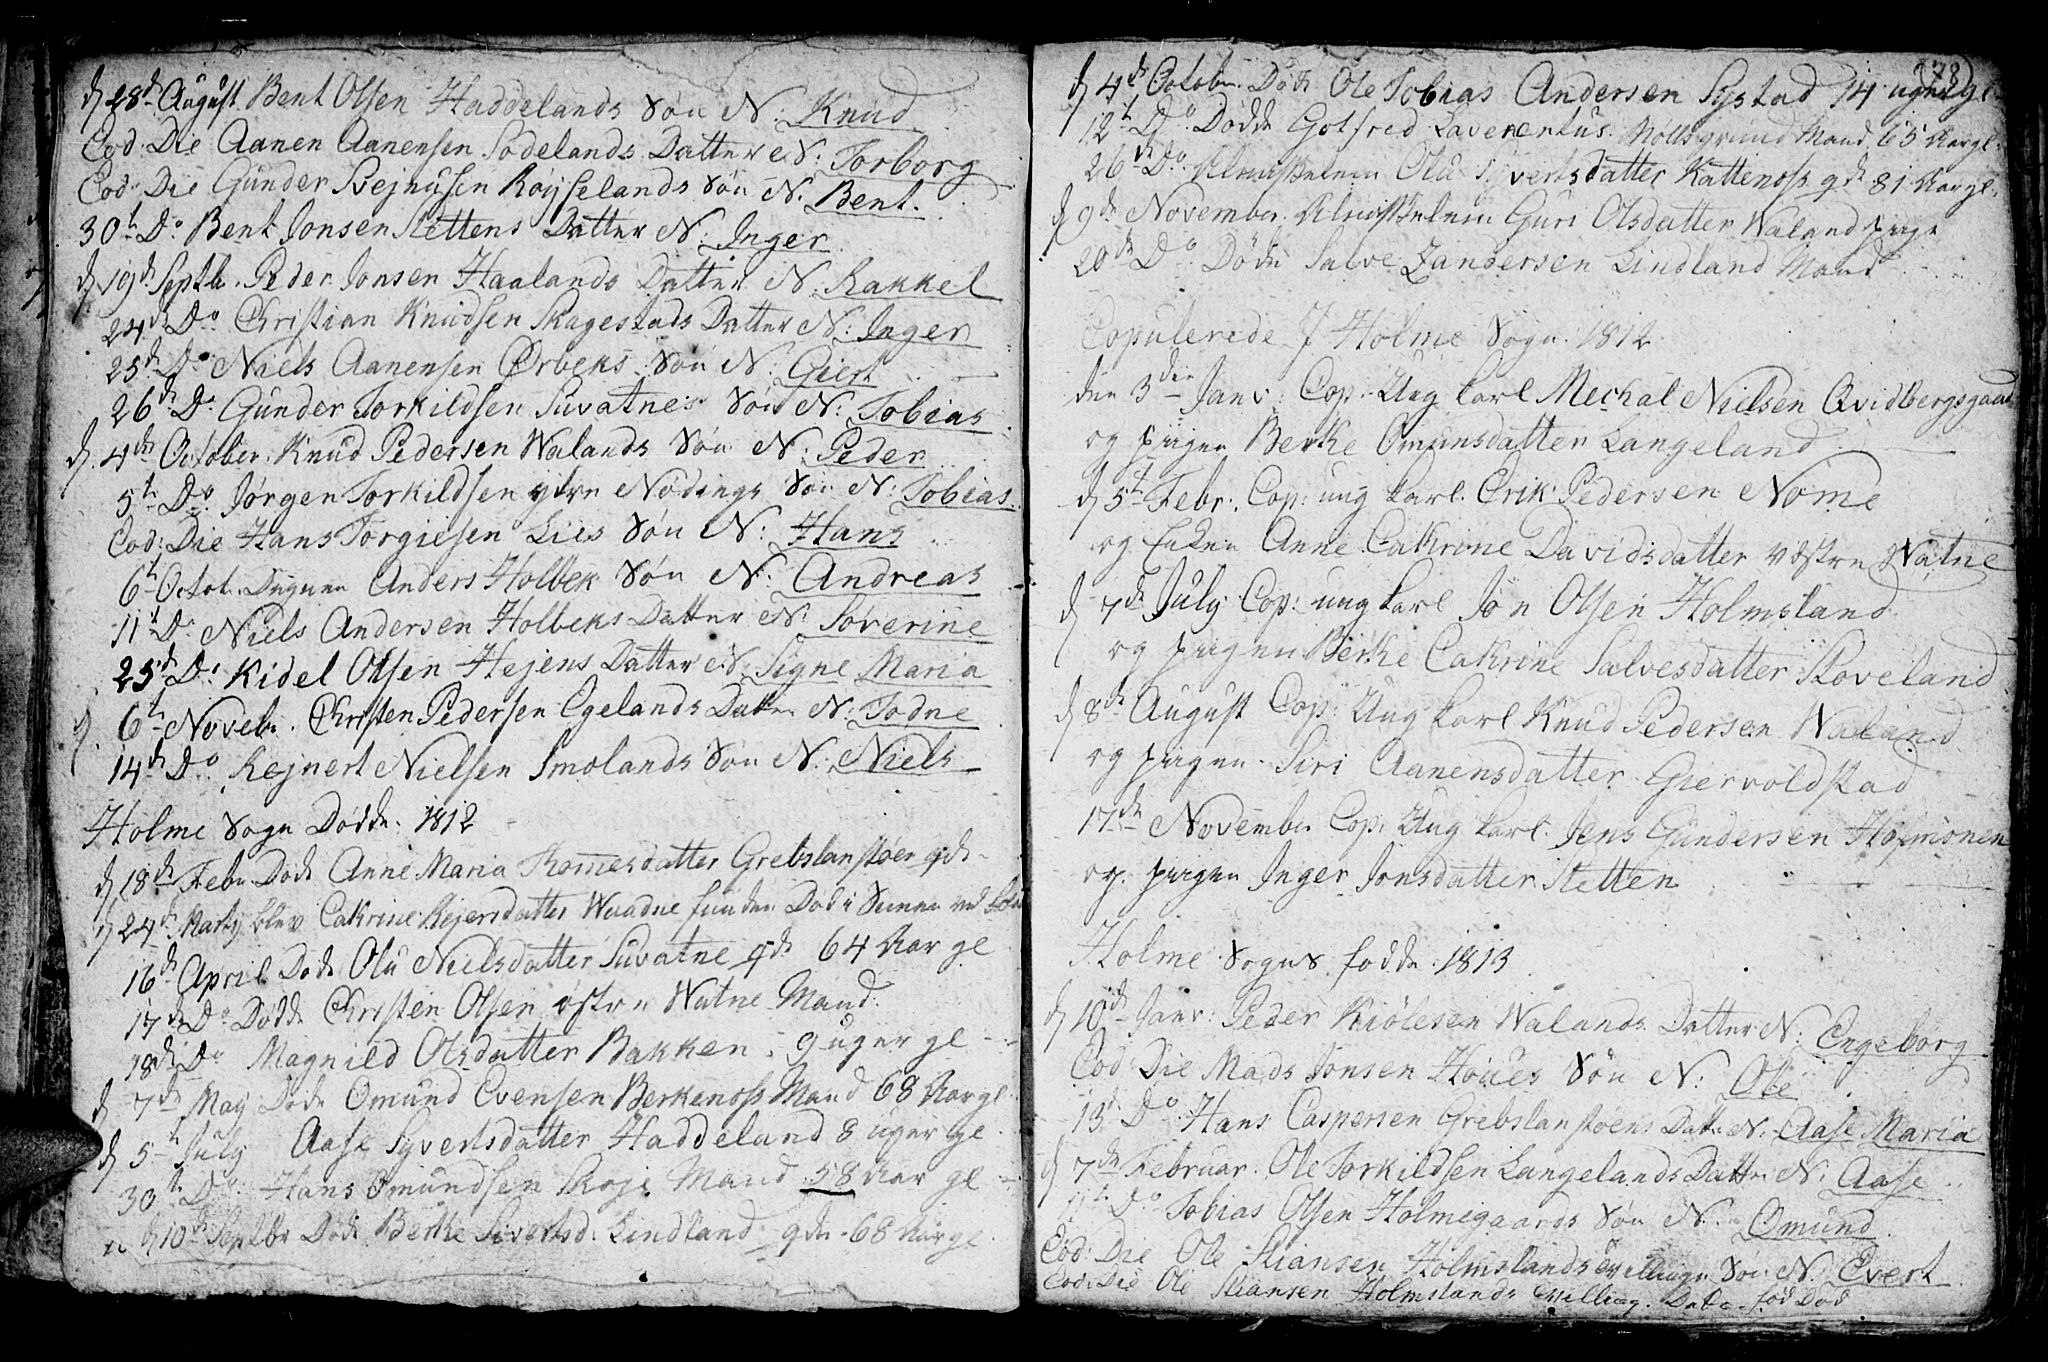 d 28d August Bent Olsen Haddelands Søn N: Knud
Eod: Die Aanen Aanensen Sødelands Datter N: Torborg
Eod: Die Gunder Svejnusen Røyselands Søn N. Bent.
30t Do Bent Jonsen Stettens Datter N: Inger
d 19d Septbr. Peder Jonsen Haalands Datter N. Rakkel
24d Do Christian Knudsen Skagestads Datter N: Inger
25d Do Niels Aanensen Ørbeks Søn N: Giert
26d Do Gunder Torkildsen Suvatnes Søn N: Tobias
d. 4de October. Knud Pedersen Walands Søn N. Peder
5t Do Jørgen Torkildsen ytre Nødings Søn N: Tobias
Eod: Die Hans Torgiesen Lies Søn N: Hans
6t Octob. Anders Holbek Søn N: Andreas
11t Do Niels Andersen Holbeks Datter N. Søverine
25d Do Kidel Olsen Hejens Datter N. Signe Maria
d. 6t Novebr. Christen Pedersen Egelands Datter N: Todne
14d Do Rejnert Nielsen Smolands Søn N: Niels
Holme Sogn Dødde. 1812
d 18de Febr Døde Anne Maria Thomesdatter Grebslanstøen gde
d 24d Marty blev Catrine Rejersdatter Waadne funden Død i Søenen ved
16de April Døde Olu Nielsdatter Suvatne gde 64 Aar gl
17de Do Dødde Christen Olsen østre Watne Mand.
18de Do Magnild Olsdatter Bakken. 9 uger gl
d 7de May Døde Omund Evensen Berkenoss Mand 68 Aar gl.
d 5t July Aase Syvertsdatter Haddeland 8 uger gl.
30t Do Hans Omundsen Skoje Mand 58 Aar gl
d 10de Septbr Døde Berke Sivertsd. Lindland gde 68 Aar gl.
78
d 4de Octobr. Døde Ole Tobias Andersen Systad 14 uger gl
12t Do Dødde Gotfred Laverentus. Møllsgrund Mand 65 Aar gl.
26de Do Almisselem Olu Syvertsdatter Kattenoss gde 81 Aar gl.
d 9de November. Almisselem Guri Olsdatter Waland pige
20de Do Døde Salve Zandersen Lindland Mand
Copulerede J Holme Sogn. 1812.
den 3den Janv: Cop. Ung karl Mechal Nielsen Qvidbergsgaard
og pigen Berke Omunsdatter Langeland
d 5t Febr. Cop: ung karl. Erik Pedersen Nome
og Enken Anne Catrine Davidsdatter vestre Watne
d 7de July Cop: ung karl Jon Olsen Holmsland
og pigen Berke Catrine Salvesdatter Skoveland
d 8de August Cop: Ung karl Knud Pedersen Waland
og pigen Siri Aanensdatter Giervoldstad
17de November Cop: Ung karl. Jens Gundersen Hojmonen
og. pigen Inger Jonsdatter Stetten
Holme Sogns fødde 1813
d 10de Janv: Peder Kiølesen Walands Datter N: Engeborg
Eod Die Mads Jonsen Houes Søn N: Ole
13t Do Hans Caspersen Grebslanstøens Datter N: Aase Maria
d 7de Februar. Ole Torkildsen Langelands Datter N. Aase
11t Do Tobias Olsen Holmegaards Søn N. Omund
Eod: Die Ole Stiansen Holmslands tvilling Søn N. Evert
Eod: Die Ole Stiansen Holmslands tvilling Datter fød Død